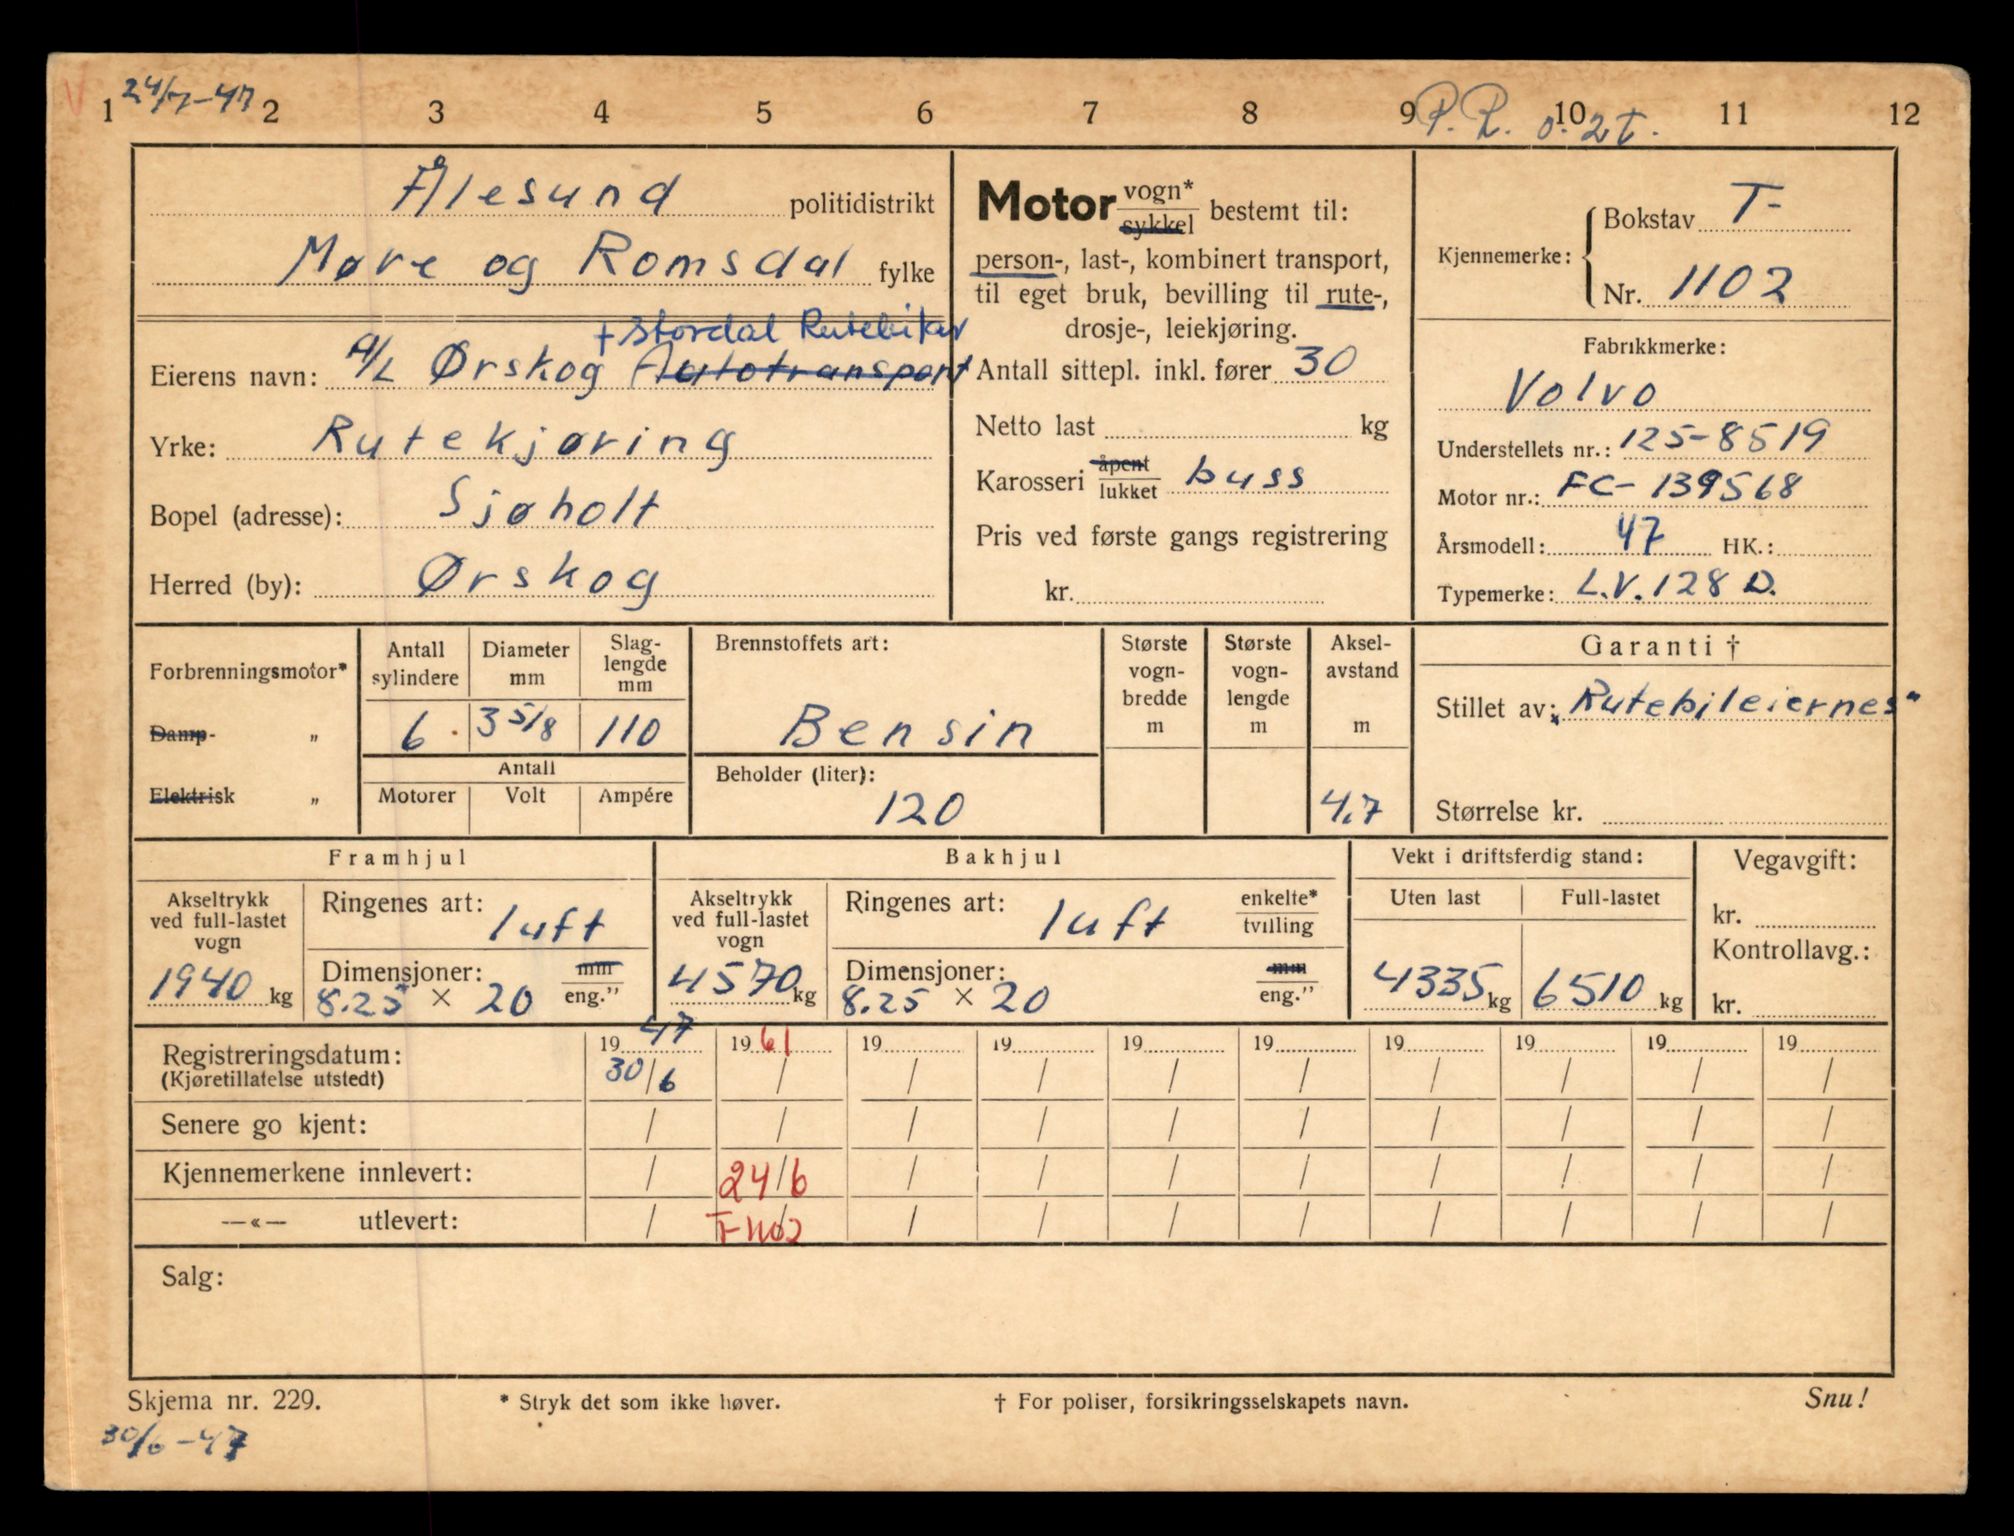 V 24/7-47
1 2 3 4 5 6 7 8 9 10 11 12
P.R. o. 2t.
Ålesund politidistrikt
Møre og Romsdal fylke
+ Stordal Rutebilar
Eierens navn: A/L Ørskog Autotransport
Yrke: Rutekjøring
Bopel (adresse): Sjøholt
Herred (by): Ørskog
Motor vogn* sykkel bestemt til:
person-, last-, kombinert transport,
til eget bruk, bevilling til rute-,
drosje-, leiekjøring.
Antall sittepl. inkl. fører 30
Netto last kg
Karosseri åpent lukket buss
Pris ved første gangs registrering
kr.
Kjennemerke: Bokstav T-
Nr. 1102
Fabrikkmerke:
Volvo
Understellets nr.: 125-8519
Motor nr.: FC-139568
Årsmodell: 47 HK.:
Typemerke: L.V. 128 D.
Forbrenningsmotor*
Damp- „
Elektrisk „
Antall sylindere Diameter mm Slag-lengde mm
6 3 5/8 110
Antall
Motorer Volt Ampére
Brennstoffets art:
Bensin
Beholder (liter):
120
Største vogn-bredde m
Største vogn-lengde m
Aksel-avstand m
4,7
Garanti †
Stillet av: „Rutebileiernes"
Størrelse kr.
Framhjul
Akseltrykk ved full-lastet vogn
1940 kg
Ringenes art: luft
Dimensjoner: mm
8.25 × 20 eng."
Bakhjul
Akseltrykk ved full-lastet vogn
4570 kg
Ringenes art: luft enkelte* tvilling
Dimensjoner: mm
8.25 × 20 eng."
Vekt i driftsferdig stand:
Uten last Full-lastet
4335 kg 6510 kg
Vegavgift:
kr.
Kontrollavg.:
kr.
Registreringsdatum: 19 47 19 61 19 19 19 19 19 19 19 19
(Kjøretillatelse utstedt) 30/6 / / / / / / / / /
Senere go kjent: / / / / / / / / / /
Kjennemerkene innlevert: / 24/6 / / / / / / / /
—«— utlevert: / T-1102 / / / / / / / /
Salg:
Skjema nr. 229. * Stryk det som ikke høver. † For poliser, forsikringsselskapets navn. Snu!
30/6-47